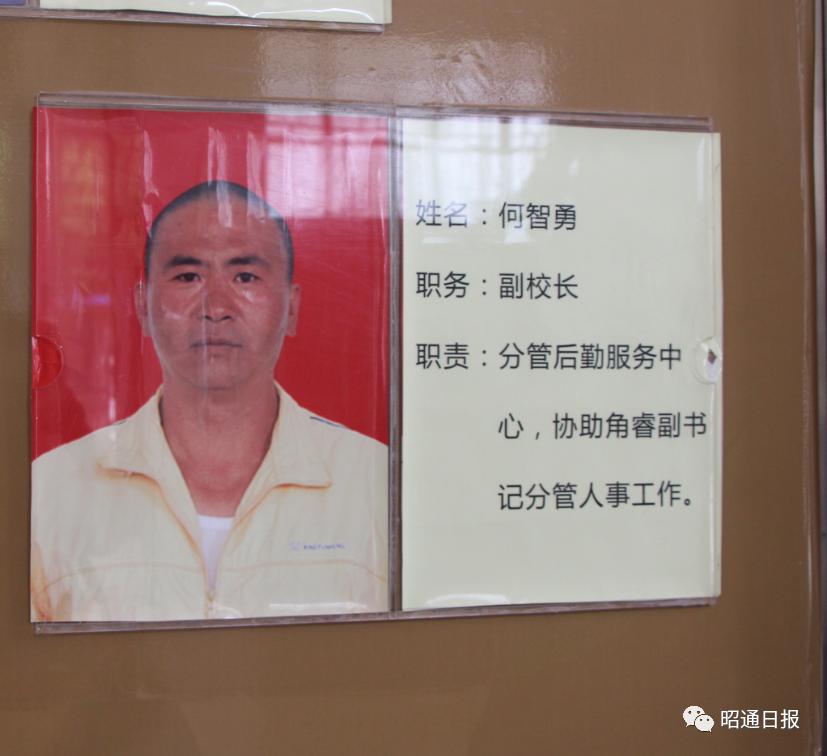 姓名：何智勇
职务：副校长
职责：分管后勤服务中
心，协助角睿副书
记分管人事工作。
昭通日报